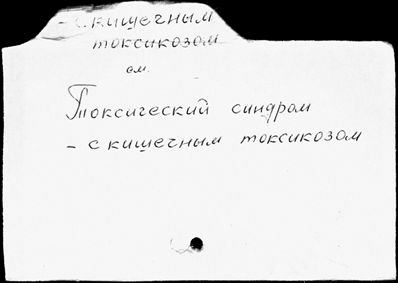 - с кишечным
токсикозом
см.
Токсический синдром
- с кишечным токсикозом